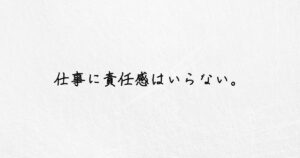 仕事に責任感はいらない。